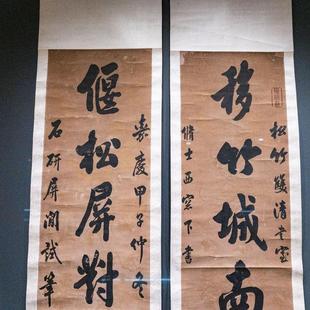 移竹城南
松竹雙清書室
脩士西窓下書
偃松屏對
嘉慶甲子仲冬
石研屏間試筆